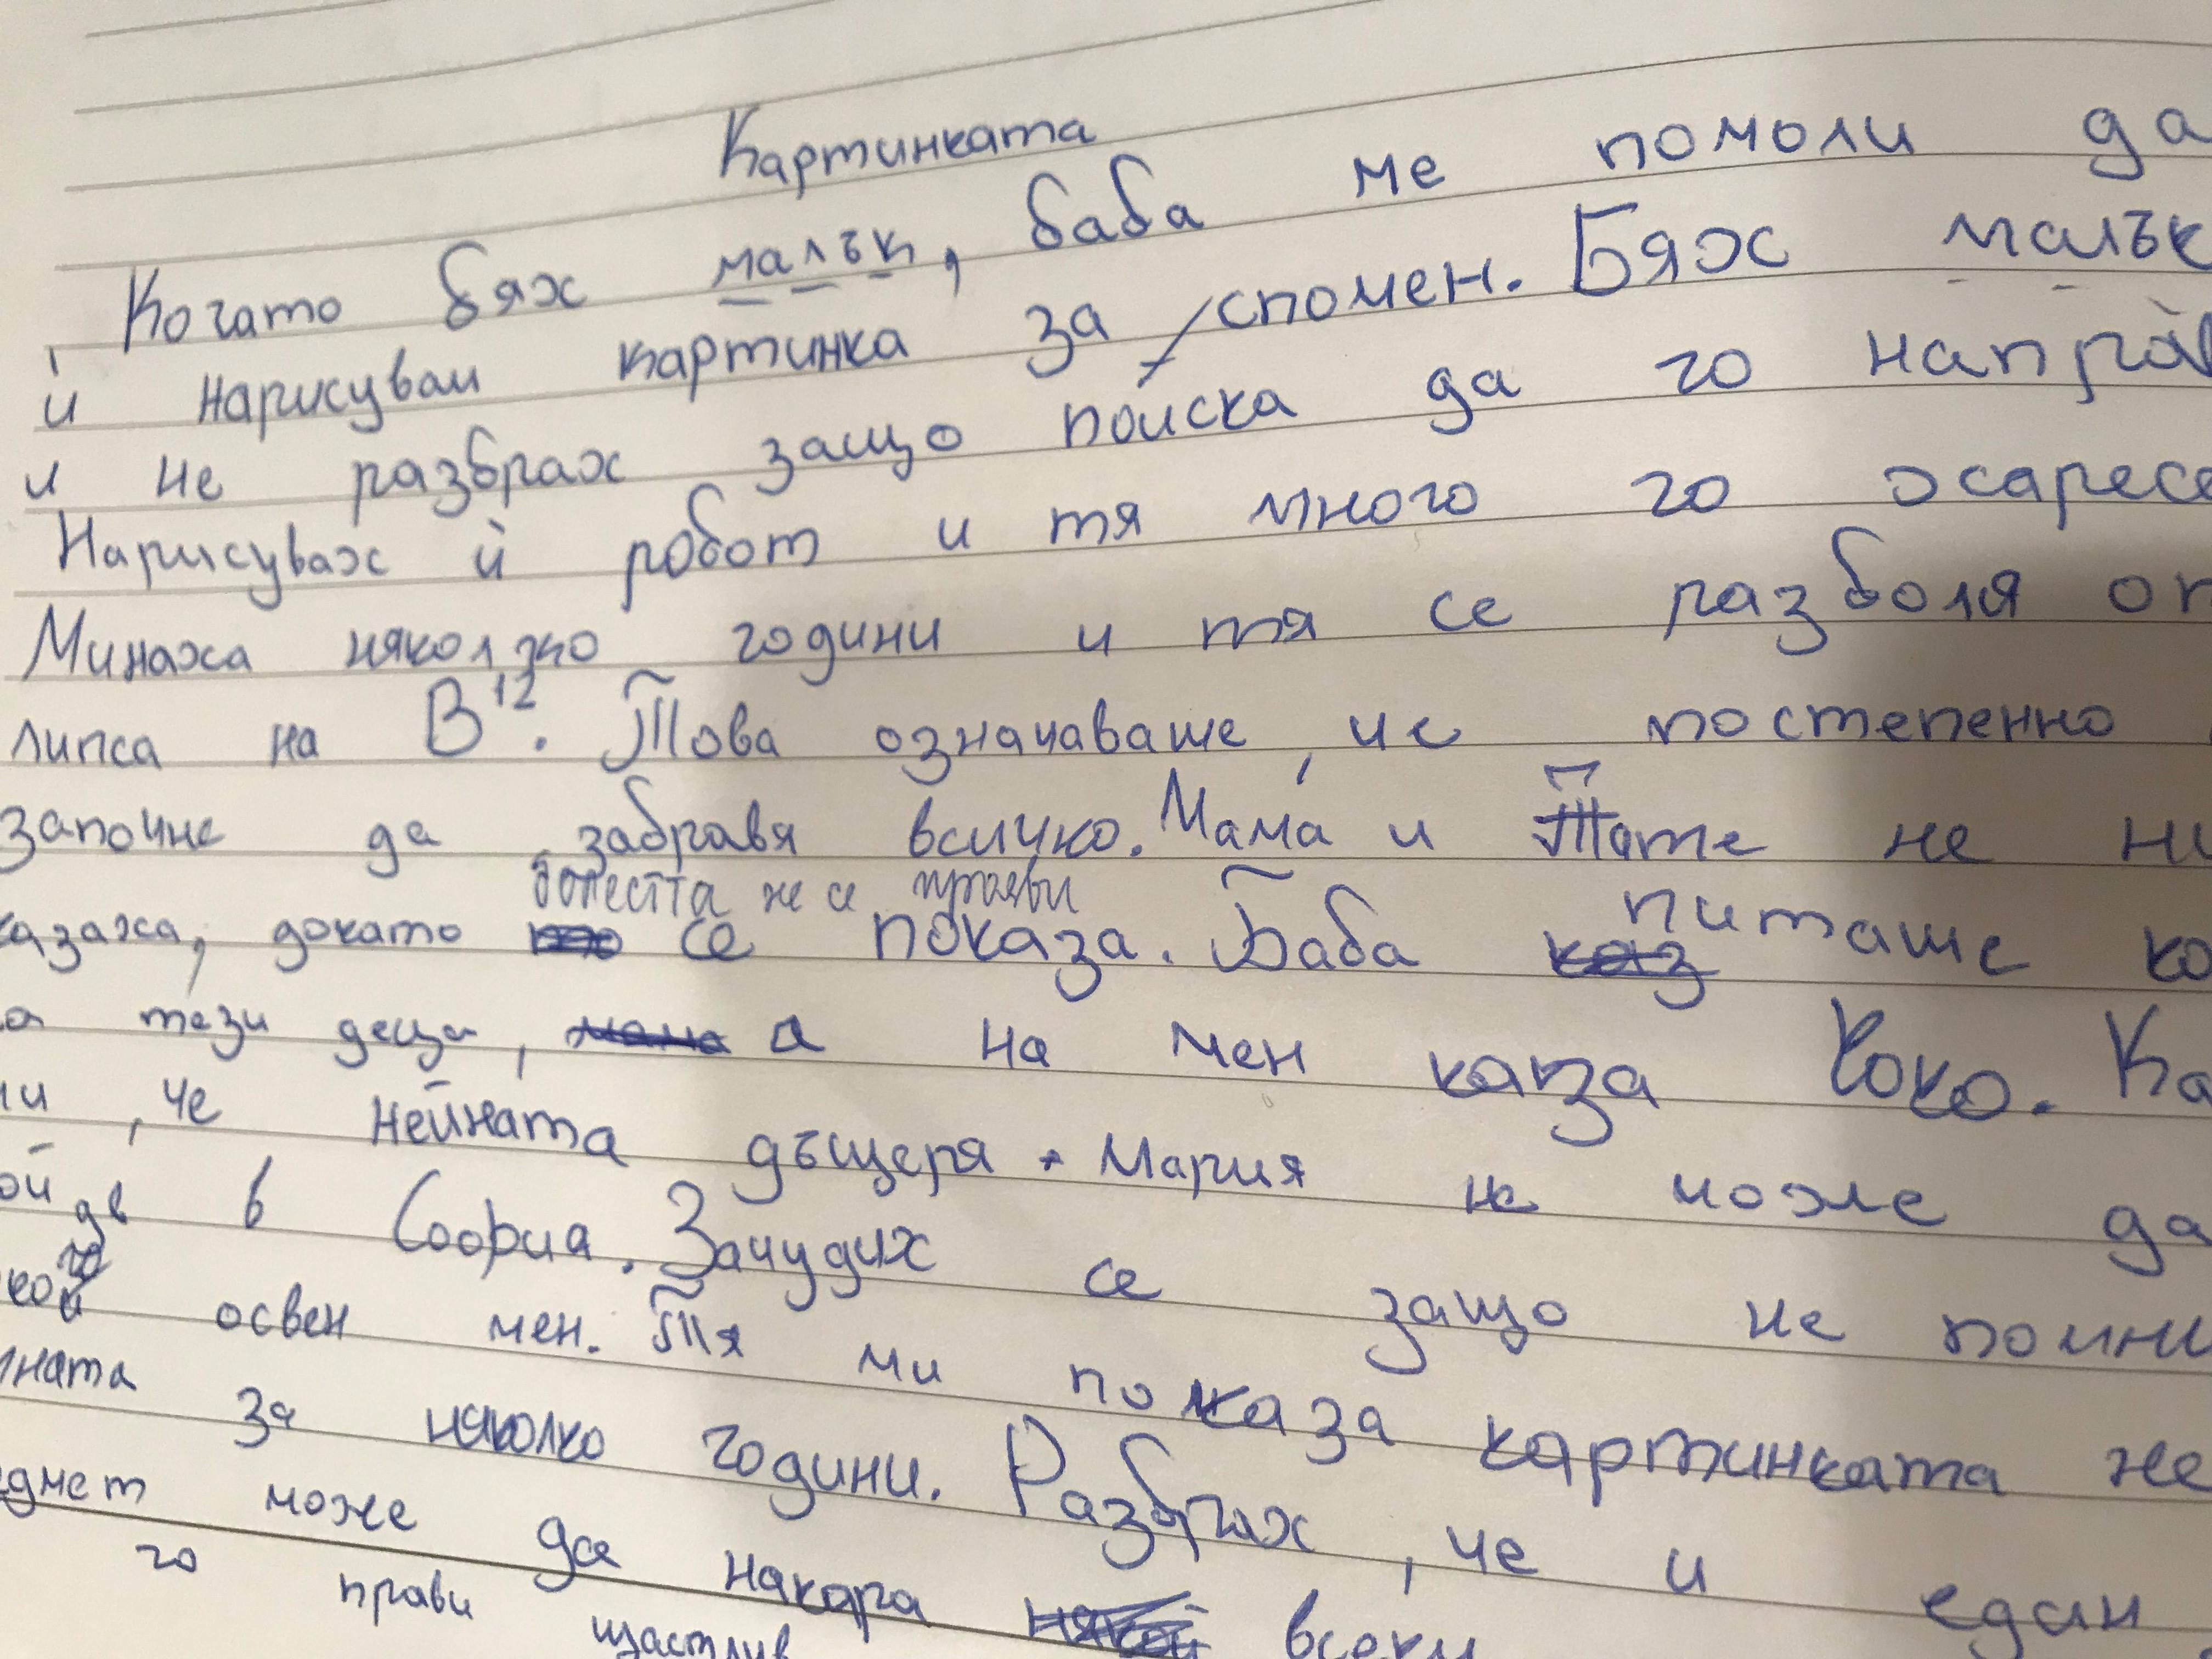 Картинката
Когато бях малък, баба ме помоли да
ѝ нарисувам картинка за спомен. Бях малък
и не разбрах защо поиска да го
Нарисувах й робот и тя много го
Минаха няколко години и тя се разболя от
липса на B12. Това означаваше, че постепенно
започне да забравя всичко. Мама и Тате не
болестта не се прояви
казаха, докато се показа. Баба питаше
тези деца, а на мен каза Коко.
, че нейната дъщеря - Мария не може да
в София. Зачудих се защо не
освен мен. Тя ми показа картинката
за няколко години. Разбрах, че и един
може да накара всеки
го прави щастлив